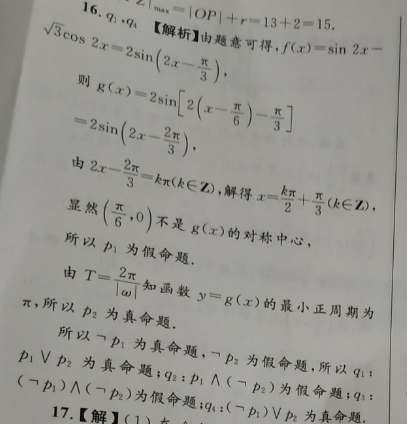 |max=|OP|+r=13+2=15.
16. q₁,q₄ 【解析】由题意可得,f(x)=sin 2x-
√3cos 2x=2sin(2x-π/3),
则 g(x)=2sin[2(x-π/6)-π/3]
=2sin(2x-2π/3),
由 2x-2π/3=kπ(k∈Z),解得 x=kπ/2+π/3(k∈Z),
显然(π/6,0)不是 g(x)的对称中心,
所以 p₁ 为假命题.
由 T=2π/|ω|知函数 y=g(x)的最小正周期为
π,所以 p₂ 为真命题.
所以¬p₁ 为真命题,¬p₂ 为假命题,所以 q₁:
p₁∨p₂ 为真命题;q₂:p₁∧(¬p₂)为假命题;q₃:
(¬p₁)∧(¬p₂)为假命题;q₄:(¬p₁)∨p₂ 为真命题.
17.【解】(1)在